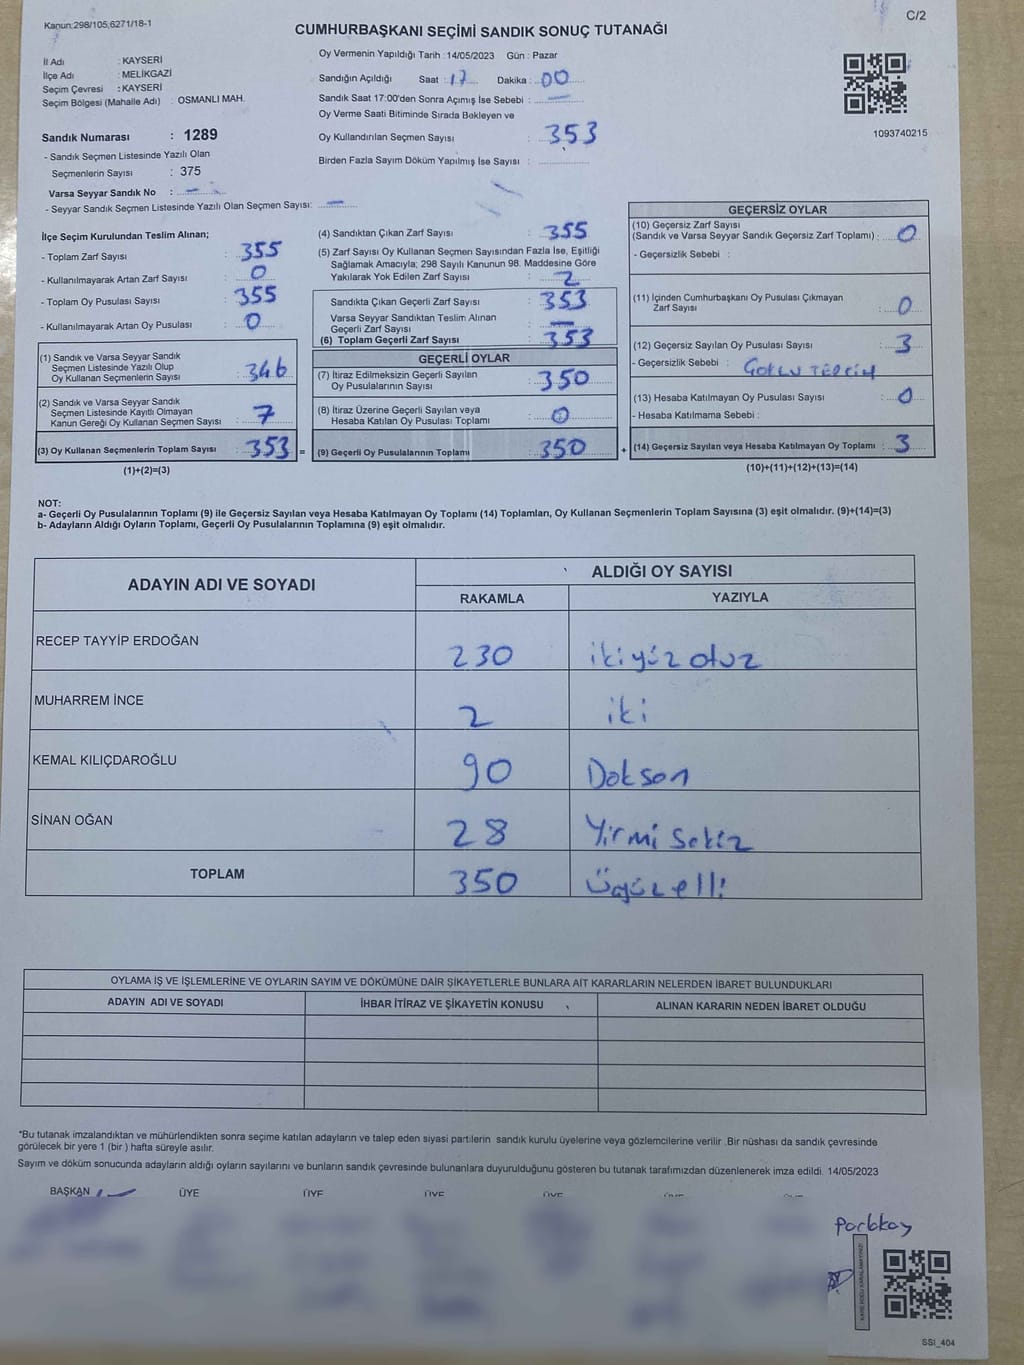 Kanun;298/105;6271/18-1
C/2
CUMHURBAŞKANI SEÇİMİ SANDIK SONUÇ TUTANAĞI
İl Adı : KAYSERİ
İlçe Adı : MELİKGAZİ
Seçim Çevresi : KAYSERİ
Seçim Bölgesi (Mahalle Adı) : OSMANLI MAH.
Sandık Numarası : 1289
- Sandık Seçmen Listesinde Yazılı Olan
Seçmenlerin Sayısı : 375
Varsa Seyyar Sandık No : -
- Seyyar Sandık Seçmen Listesinde Yazılı Olan Seçmen Sayısı: -
Oy Vermenin Yapıldığı Tarih : 14/05/2023 Gün : Pazar
Sandığın Açıldığı Saat : 17 Dakika : 00
Sandık Saat 17:00'den Sonra Açımış İse Sebebi : -
Oy Verme Saati Bitiminde Sırada Bekleyen ve
Oy Kullandırılan Seçmen Sayısı : 353
Birden Fazla Sayım Döküm Yapılmış İse Sayısı :
1093740215
İlçe Seçim Kurulundan Teslim Alınan;
- Toplam Zarf Sayısı : 355
- Kullanılmayarak Artan Zarf Sayısı : 0
- Toplam Oy Pusulası Sayısı : 355
- Kullanılmayarak Artan Oy Pusulası : 0
(1) Sandık ve Varsa Seyyar Sandık
Seçmen Listesinde Yazılı Olup
Oy Kullanan Seçmenlerin Sayısı : 346
(2) Sandık ve Varsa Seyyar Sandık
Seçmen Listesinde Kayıtlı Olmayan
Kanun Gereği Oy Kullanan Seçmen Sayısı : 7
(3) Oy Kullanan Seçmenlerin Toplam Sayısı : 353 =
(1)+(2)=(3)
(4) Sandıktan Çıkan Zarf Sayısı : 355
(5) Zarf Sayısı Oy Kullanan Seçmen Sayısından Fazla İse, Eşitliği
Sağlamak Amacıyla; 298 Sayılı Kanunun 98. Maddesine Göre
Yakılarak Yok Edilen Zarf Sayısı : 2
Sandıkta Çıkan Geçerli Zarf Sayısı : 353
Varsa Seyyar Sandıktan Teslim Alınan
Geçerli Zarf Sayısı : -
(6) Toplam Geçerli Zarf Sayısı : 353
GEÇERLİ OYLAR
(7) İtiraz Edilmeksizin Geçerli Sayılan
Oy Pusulalarının Sayısı : 350
(8) İtiraz Üzerine Geçerli Sayılan veya
Hesaba Katılan Oy Pusulası Toplamı : 0
(9) Geçerli Oy Pusulalarının Toplamı : 350 +
GEÇERSİZ OYLAR
(10) Geçersiz Zarf Sayısı
(Sandık ve Varsa Seyyar Sandık Geçersiz Zarf Toplamı) : 0
- Geçersizlik Sebebi :
(11) İçinden Cumhurbaşkanı Oy Pusulası Çıkmayan
Zarf Sayısı : 0
(12) Geçersiz Sayılan Oy Pusulası Sayısı : 3
- Geçersizlik Sebebi :
(13) Hesaba Katılmayan Oy Pusulası Sayısı : 0
- Hesaba Katılmama Sebebi :
(14) Geçersiz Sayılan veya Hesaba Katılmayan Oy Toplamı : 3
(10)+(11)+(12)+(13)=(14)
NOT:
a- Geçerli Oy Pusulalarının Toplamı (9) ile Geçersiz Sayılan veya Hesaba Katılmayan Oy Toplamı (14) Toplamları, Oy Kullanan Seçmenlerin Toplam Sayısına (3) eşit olmalıdır. (9)+(14)=(3)
b- Adayların Aldığı Oyların Toplamı, Geçerli Oy Pusulalarının Toplamına (9) eşit olmalıdır.
ADAYIN ADI VE SOYADI
ALDIĞI OY SAYISI
RAKAMLA YAZIYLA
RECEP TAYYİP ERDOĞAN 230 ikiyüz otuz
MUHARREM İNCE 2 iki
KEMAL KILIÇDAROĞLU 90 Doksan
SİNAN OĞAN 28 Yirmi sekiz
TOPLAM 350 Üçyüz elli
OYLAMA İŞ VE İŞLEMLERİNE VE OYLARIN SAYIM VE DÖKÜMÜNE DAİR ŞİKAYETLERLE BUNLARA AİT KARARLARIN NELERDEN İBARET BULUNDUKLARI
ADAYIN ADI VE SOYADI İHBAR İTİRAZ VE ŞİKAYETİN KONUSU ALINAN KARARIN NEDEN İBARET OLDUĞU
*Bu tutanak imzalandıktan ve mühürlendikten sonra seçime katılan adayların ve talep eden siyasi partilerin sandık kurulu üyelerine veya gözlemcilerine verilir .Bir nüshası da sandık çevresinde
görülecek bir yere 1 (bir ) hafta süreyle asılır.
Sayım ve döküm sonucunda adayların aldığı oyların sayılarını ve bunların sandık çevresinde bulunanlara duyurulduğunu gösteren bu tutanak tarafımızdan düzenlenerek imza edildi. 14/05/2023
BAŞKAN ÜYE ÜYE ÜYE ÜYE ÜYE ÜYE
KARE KODU KARALAMAYINIZ!
SSI_404